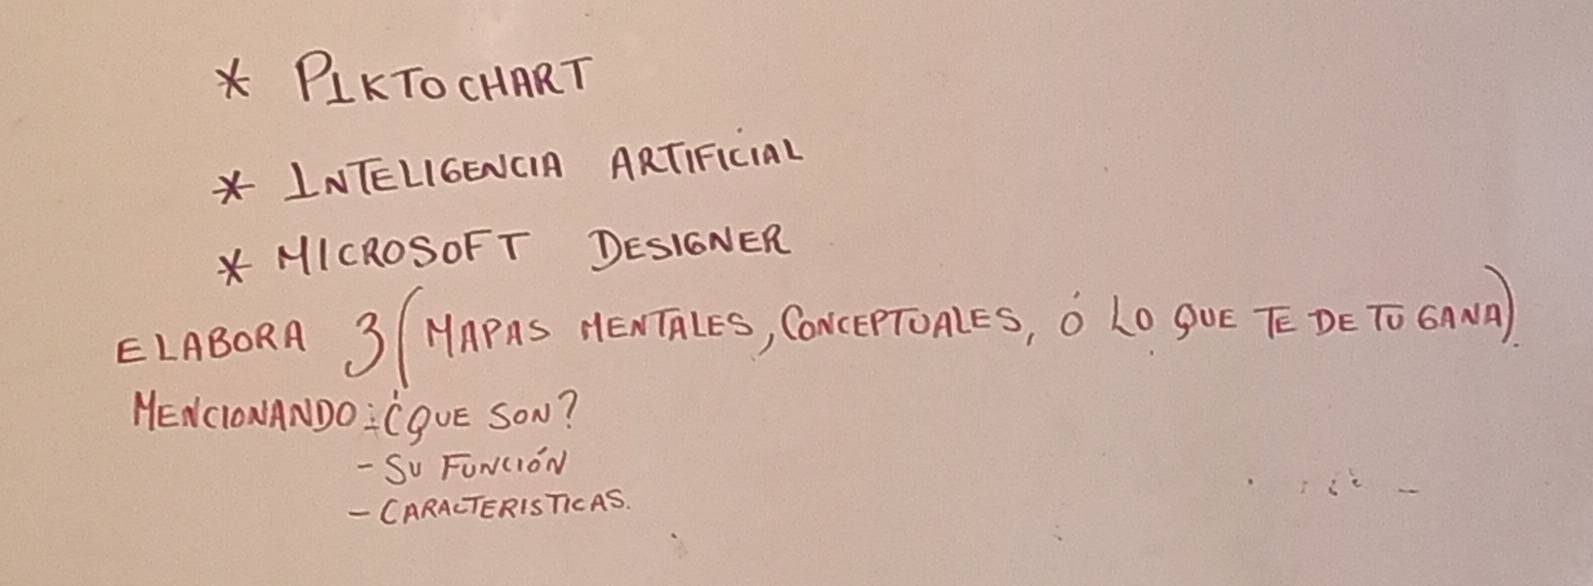 * PIKTOCHART
* INTELIGENCIA ARTIFICIAL
* MICROSOFT DESIGNER
ELABORA 3 (MAPAS MENTALES, CONCEPTUALES, Ó LO QUE TE DE TU GANA).
MENCIONANDO:¿QUE SON?
- SU FUNCIÓN
- CARACTERISTICAS.